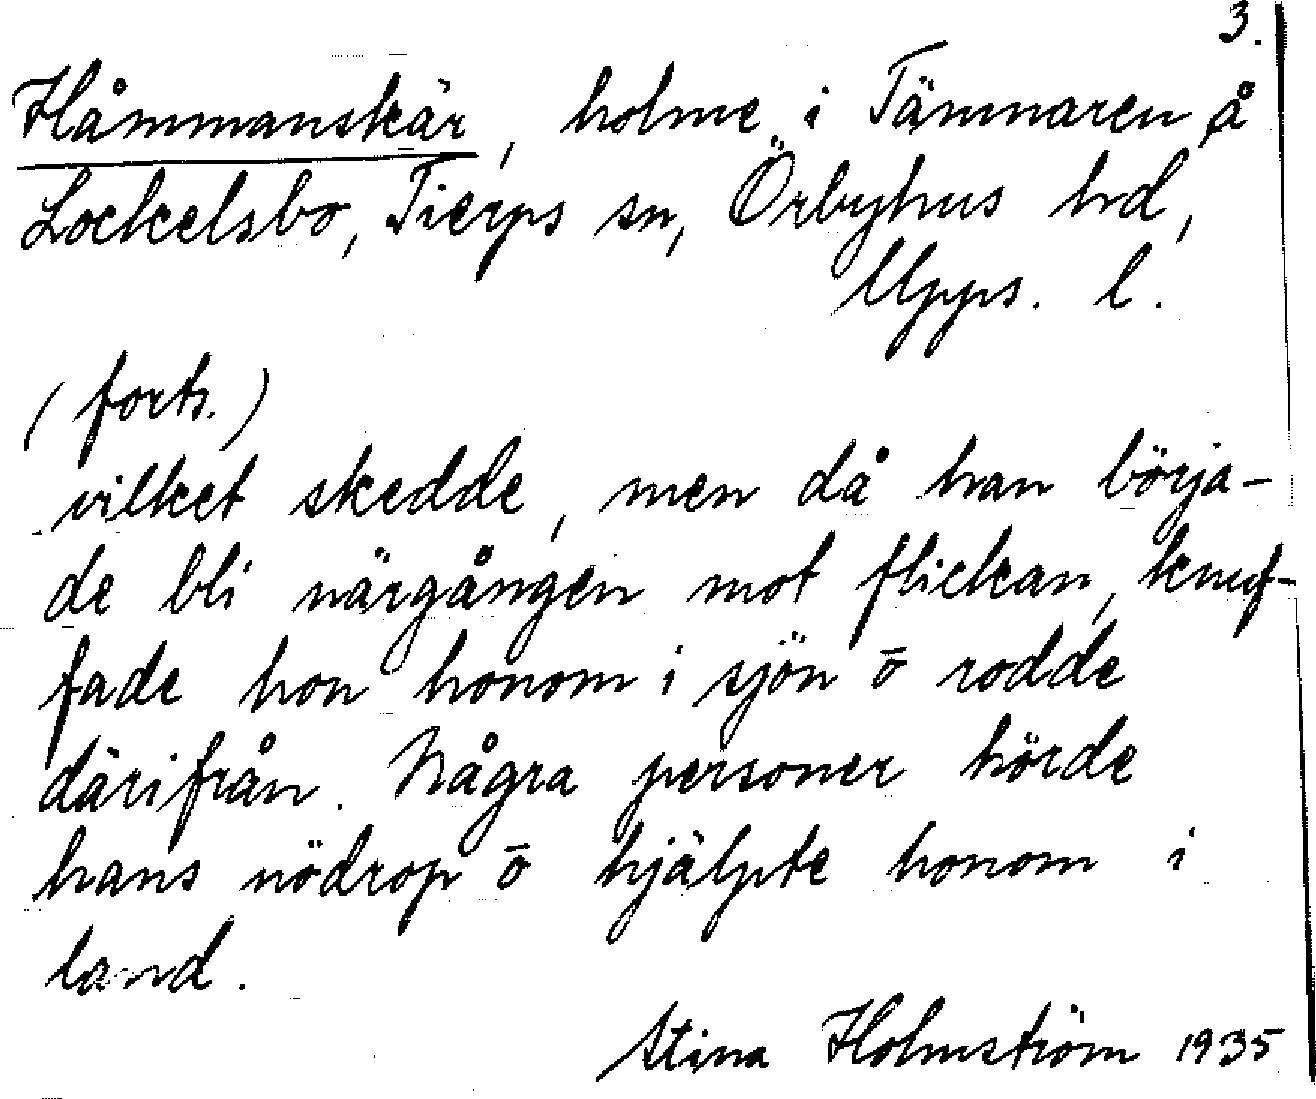 3.
Håmmanskär, holme i Tämnaren, å
Lockelsbo, Tierps sn, Örbyhus hd,
Upps. l.
(forts.)
vilket skedde, men då han börja-
de bli närgången mot flickan, knuf-
fade hon honom i sjön ō rodde
därifrån. Några personer hörde
hans nödrop ō hjälpte honom i
land.
Stina Holmström 1935